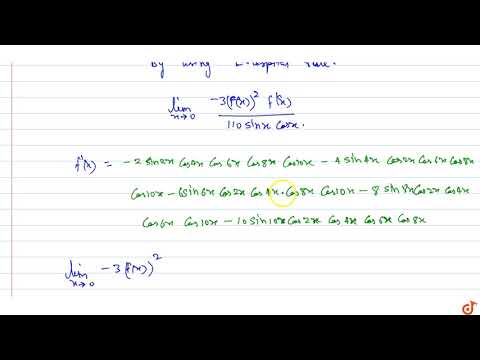 By using L-Hospital rule.
lim x→0 -3(f(x))² f'(x) / 110 sinx cosx.
f'(x) = -2 sin2x cos4x cos6x cos8x cos10x - 4 sin4x cos2x cos6x cos8x
cos10x - 6 sin6x cos2x cos4x. cos8x cos10x - 8 sin8x cos2x cos4x
cos6x cos10x - 10 sin10x cos2x cos4x cos6x cos8x
lim x→0 -3(f(x))²